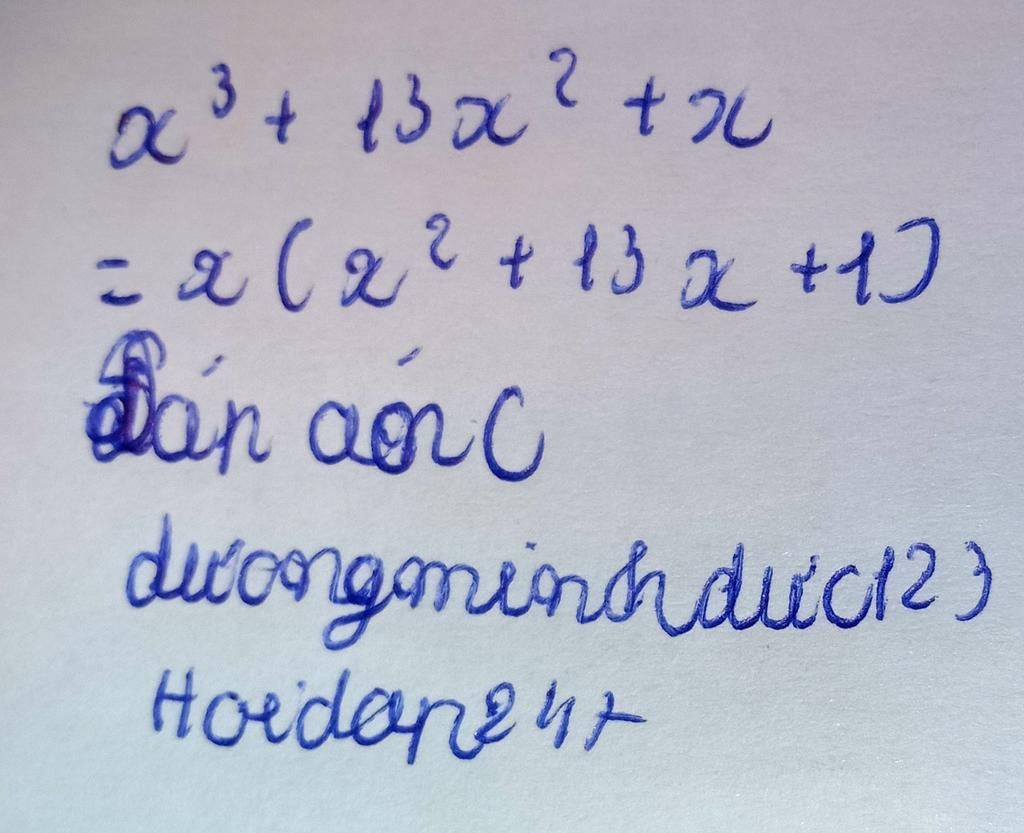 x³ + 13x² + x
= x(x² + 13x + 1)
Đáp aón C
duongminhduc123
Hoidap247